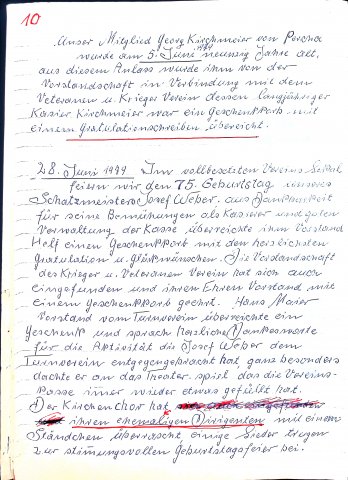 10
Unser Mitglied Georg Kirchmeier von Percha
wurde am 5. Juni neunzig Jahre alt,
aus diesem Anlass wurde ihm von der
Vorstandschaft in Verbindung mit dem
Veteranen u. Krieger Verein dessen langjähriger
Kasier Kirchmeier war ein Geschenkkorb mit
einem Gratulationschreiben überreicht.
28. Juni 1999 Im vollbesetzten Vereins
feiern wir den 75. Geburtstag unseres
Schatzmeisters Josef Weber. aus Dankbarkeit
für seine Bemühungen als Kasierer und guten
Verwaltung der Kasse überreichte ihm Vorstand
einen Geschenkkorb mit den herzlichsten
Gratulation u. Glückwünschen. Die Vorstandschaft
des Krieger u. Veteranen Verein hat sich auch
eingefunden und ihren Ehren Vorstand mit
einem Geschenkkorb geehrt. Hans Maier
Vorstand vom Turnverein überreichte ein
Geschenk und sprach herzliche Dankesworte
für die Aktivität die Josef Weber dem
Turnverein entgegengebracht hat ganz besonders
dachte er an das Theater-spiel das die Vereins-
Kasse imer wieder etwas gefüllt hat.
Der Kirchenchor hat
ihren ehemaligen Dirigenten mit einem
Ständchen überrascht einige Lieder trugen
zur stimungsvollen Geburtstagsfeier bei.